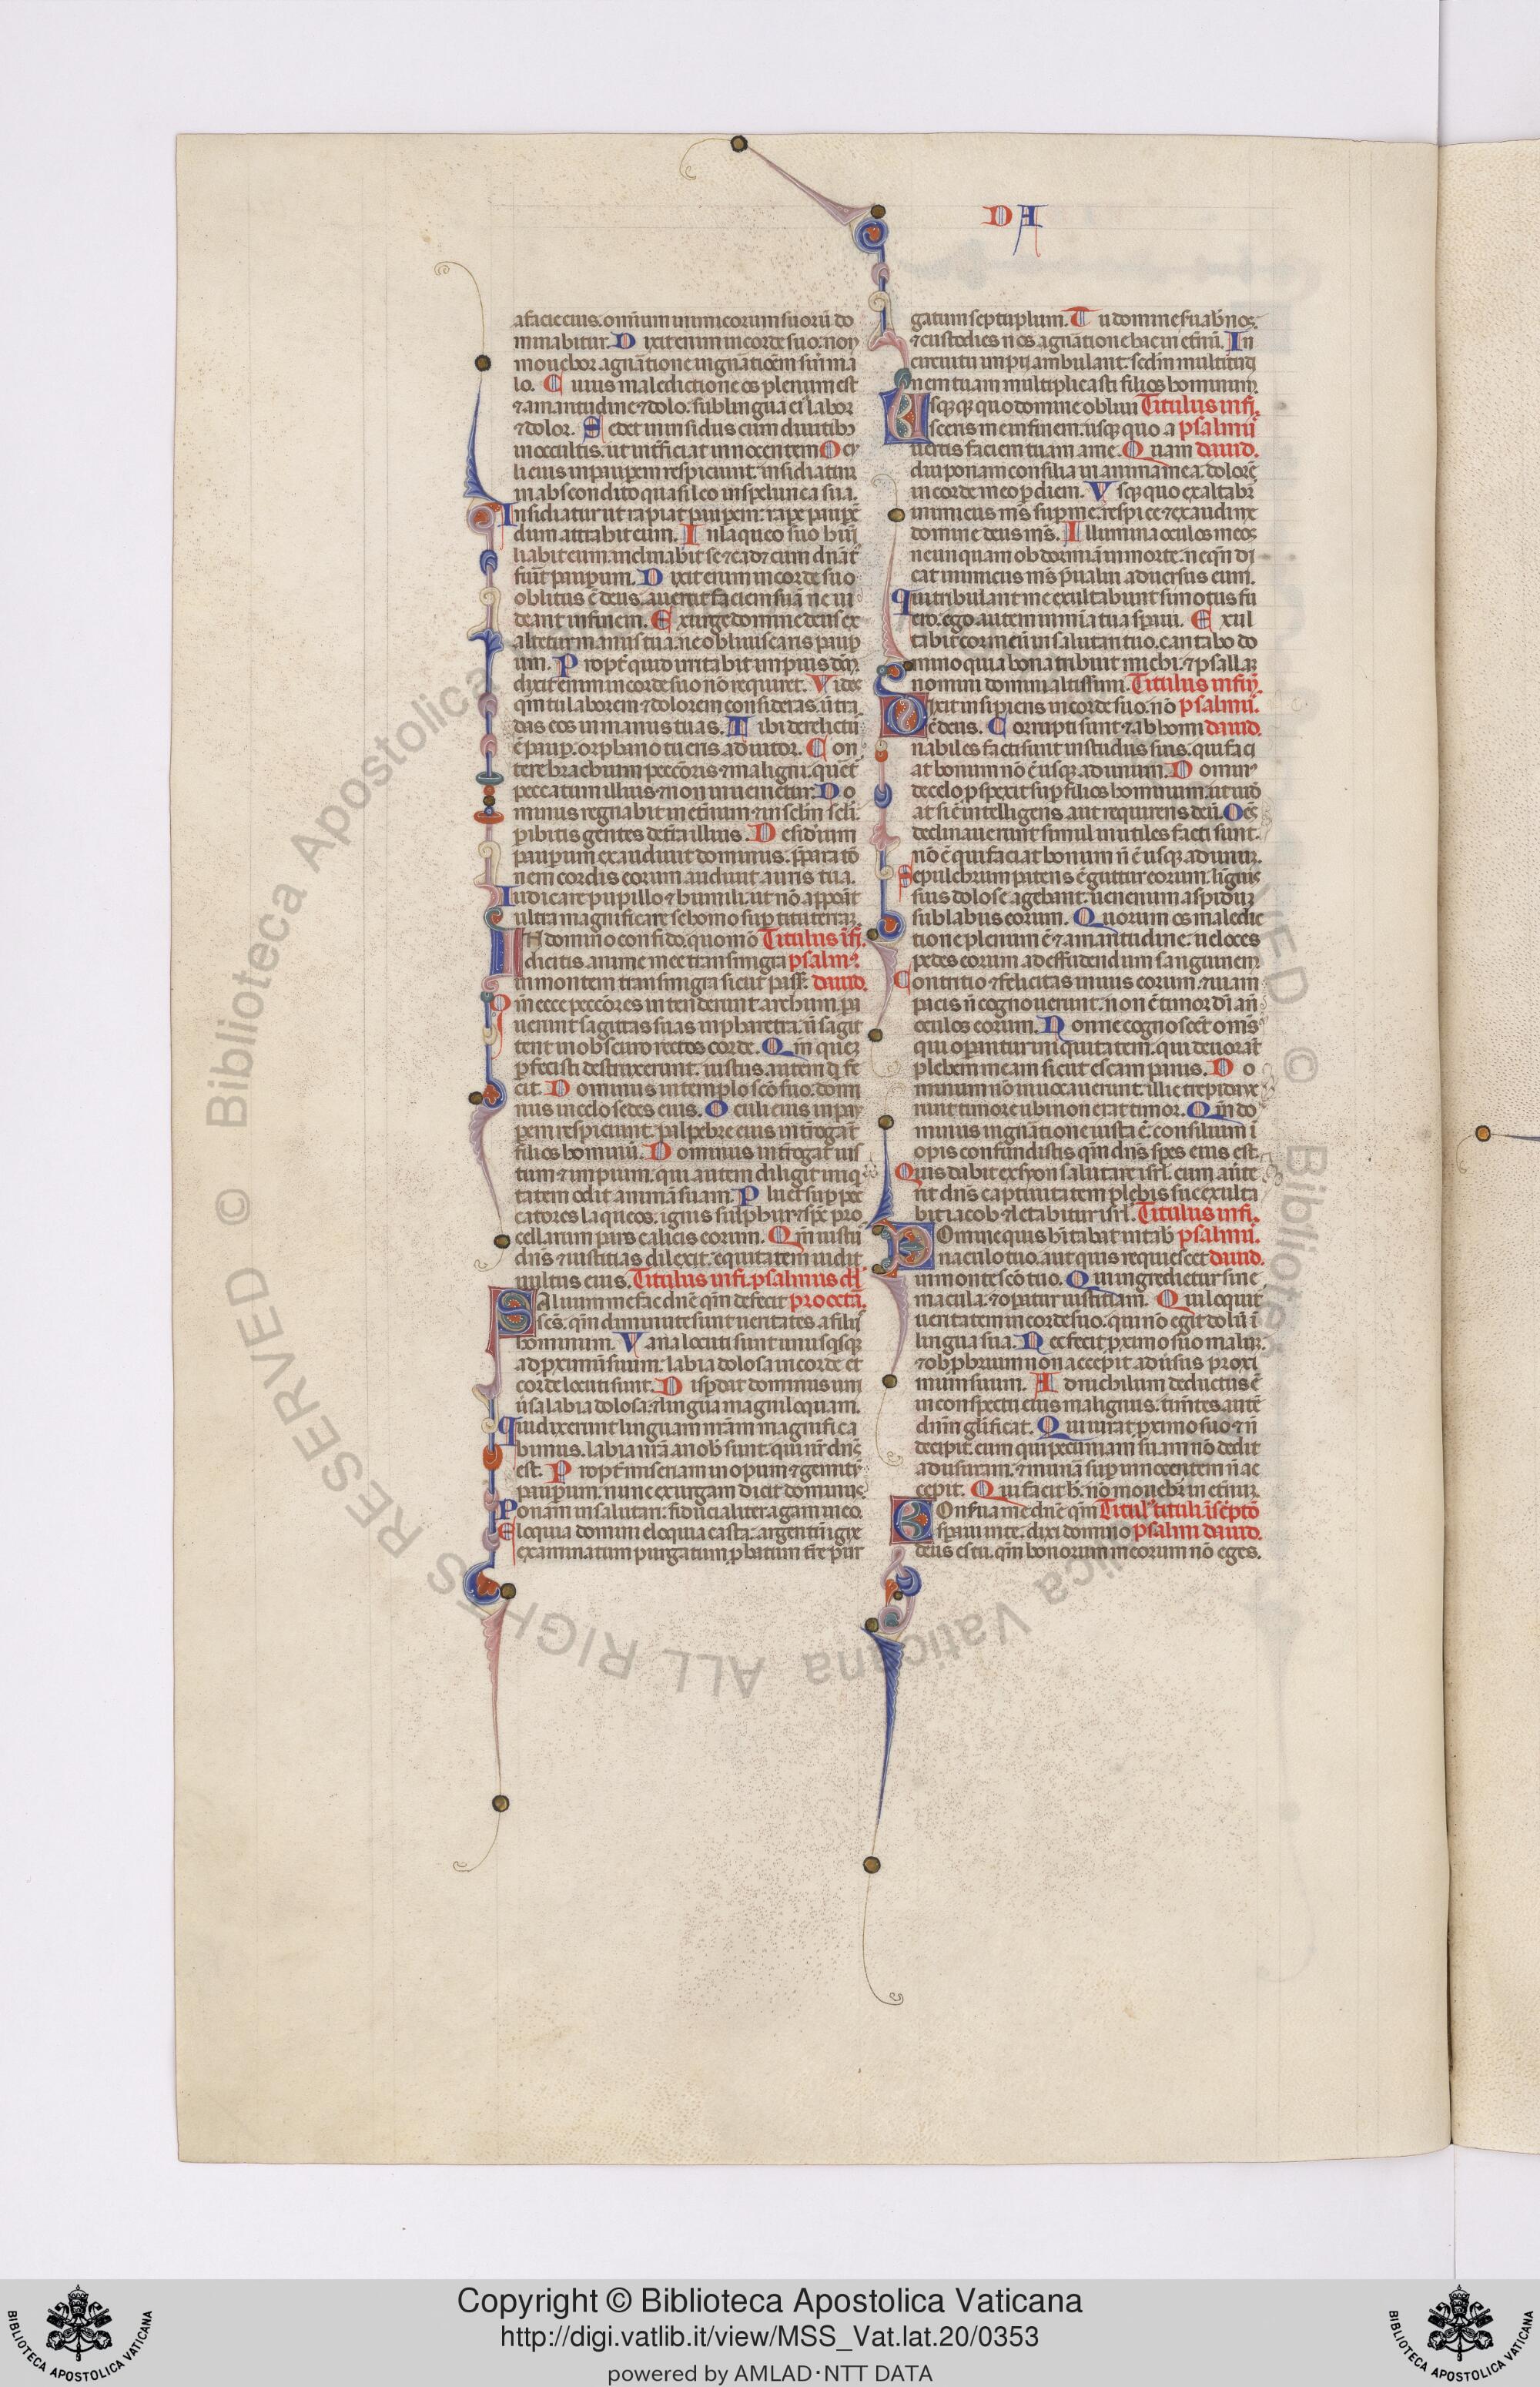 DA
a facie eius. omnium inimicorum suorū do
minabitur. Dixit enim in corde suo. non
mouebor a gnātione in gnātioēm sine ma
lo. Cuius maledictione os plenum est
⁊ amaritudine ⁊ dolo. sub lingua eī labor
⁊ dolor. Sedet in insidiis cum diuitib;
in occultis. ut int̄ficiat innocentem Ocu
li eius in paupem respiciunt. insidiatur
in abscondito quasi leo in spelunca sua.
Insidiatur ut rapiat paupem. rape paupē
dum attrahit eum. In laqueo suo humi
liabit eum. inclinabit se ⁊ cadet cum dn̄at
fuit̄ paupum. Dixit enim in corde suo
oblitus ē deus. auertit faciem suā ne ui
deat in finem. Exurge domine deus ex
altetur manus tua. ne obliuiscaris paup
um. Propt̄ quid irritabit impius deū
dixit enim in corde suo nō requiret. Vides
qm̄ tu laborem ⁊ dolorem consideras. ut tra
das eos in manus tuas. Tibi derelictus
ē pauper. orphano tu eris adiutor. Con
tere brachium peccōris ⁊ maligni. queret̄
peccatum illius ⁊ non inuenietur. Do
minus regnabit in et̄num ⁊ in sclm̄ scli.
pibitis gentes de t̄ra illius. Desidium
paupum exaudiuit dominus. p̄parato
nem cordis eorum audiuit auris tua.
Iudicare pupillo ⁊ humili. ut nō apponat
ultra magnificare se homo sup titu terrā.
IN domino confido. quomō Titulus ī fi.
dicitis anime mee transmigra psalm⁹
in montem transmigra sicut pass. dauid.
Qm̄ ecce peccōres intenderunt archum. pa
uerunt sagittas suas in pharetra. ut sagit
tent in obscuro rectos corde. Qm̄ que
pfecisti destruxerunt. iustus autem qd fe
cit. Dominus in templo scō suo. domi
nus in celo sedes eius. Oculi eius in pau
pem respiciunt. palpebre eius int̄rogat̄
filios hominū. Dominus int̄rogat ius
tum ⁊ impium. qui autem diligit iniq
tatem odit animā suam. Pluet sup pec
catores laqueos. ignis sulphur ⁊ spc̄ pro
cellarum pars calicis eorum. Qm̄ iustus
dn̄s ⁊ iustitias dilexit. equitatem uidit
uultus eius. Titulus in fi. psalmus dd
SAluum me fac dn̄e qm̄ defecit pro octā.
scs̄. qm̄ diminute sunt ueritates a filijs
hominum. Vana locuti sunt unusqsque
ad pximū suum. labia dolosa in corde et
corde locuti sunt. Dispdat dominus uni
ūsa labia dolosa. ⁊ lingua magniloquam.
qui dixerunt linguam nr̄am magnifica
bimus. labia nr̄a a nob sunt. qui nr̄ dn̄s
est. Propt̄ miseriam inopum ⁊ gemitū
paupum. nunc exurgam dicit dominus
Ponam in salutari. fiducialiter agam in eo.
Eloquia domini eloquia casta. argentū igne
examinatum purgatum pbatum tr̄e pur
gatum septuplum. Tu domine suab nos.
⁊ custodies nos a gnatione hac in et̄nū. In
circuitu impij ambulant. scdm̄ multitudi
nem tuam multiplicasti filios hominum.
Usqueque quo domine obliui Titulus in fi.
sceris me in finem. usque quo a psalmū
uertis faciem tuam a me. Quam dauid.
diu ponam consilia in anima mea. dolorē
in corde meo p diem. Vsque quo exaltabr̄
inimicus ms̄ sup me. respice ⁊ exaudi me
domine deus ms̄. Illumina oculos meos
ne unquam obdormiā in morte. neqn̄ di
cat inimicus ms̄ p̄ualui aduersus eum.
qui tribulant me exultabunt si motus fu
ero. ego autem in mīa tua spaui. Exul
tabit cor meū in salutari tuo. cantabo do
mino qui abona tribuit michi. ⁊ psallam
nomini domini altissimi. Titulus in finē.
DIxit insipiens in corde suo. nō psalmū.
ē deus. Corrupti sunt ⁊ abhomi dauid.
nabiles facti sunt in studiis suis. qui faci
at bonum nō ē usque ad unum. Domin⁹
de celo pspexit sup filios hominum. ut uide
at si ē intelligens. aut requirens deū. Oēs
declinauerunt simul inutiles facti sunt.
nō ē qui faciat bonum n̄ ē usque ad unum.
Sepulchrum patens ē guttur eorum. linguis
suis dolose agebant. uenenum aspidum
sub labiis eorum. Quorum os maledic
tione plenum ē ⁊ amaritudine. ueloces
pedes eorum ad effundendum sanguinem
Contritio ⁊ felicitas in uiis eorum. ⁊ uiam
pacis n̄ cognouerunt. non ē timor dī an̄
oculos eorum. Nonne cognoscet̄ omn̄s
qui opantur iniquitatem. qui deuorāt
plebem meam sicut escam panis. Do
minum nō inuocauerunt. illic trepidaue
runt timore ubi non erat timor. Qm̄ do
minus in gnātione iusta ē. consilium ī
opis confundistis qm̄ dn̄s spes eius est.
Quis dabit ex syon salutare isrl. cum auerte
rit dn̄s captiuitatem plebis sue exulta
bit iacob ⁊ letabitur isrl. Titulus in fi.
DOmine quis hītabit in tab psalmū.
naculo tuo. aut quis requiescet dauid.
in monte scō tuo. Qui ingreditur sine
macula. ⁊ opatur iustitiam. Qui loquit̄
ueritatem in corde suo. qui nō egit dolū ī
lingua sua. Nec fecit pximo suo malū.
⁊ obpbrium non accepit aduersus proxi
mum suum. Ad nichilum deductus ē
in conspectu eius malignus. timētes autē
dnm̄ glificat. Qui iurat pximo suo ⁊ n̄
decipit. cum qui pecuniam suam nō dedit
ad usuram. ⁊ munā sup innocentem n̄ ac
cepit. Qui facit h. nō mouebr̄ in et̄num.
COnserua me dn̄e qm̄ Titul⁹ tituli īscriptō
spaui in te. dixi domino psalmi dauid.
deus es tu. qm̄ bonorum meorum nō eges.
© Biblioteca Apostolica Vaticana ALL RIGHTS RESERVED
© Biblioteca
Copyright © Biblioteca Apostolica Vaticana
http://digi.vatlib.it/view/MSS_Vat.lat.20/0353
powered by AMLAD·NTT DATA
BIBLIOTECA APOSTOLICA VATICANA
BIBLIOTECA APOSTOLICA VATICANA